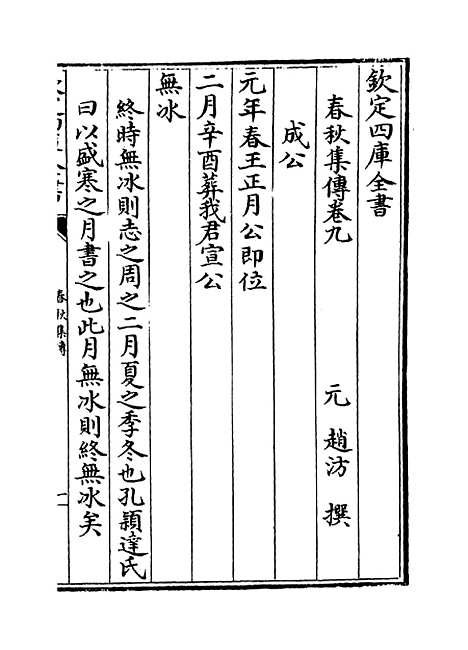 欽定四庫全書
春秋集傳卷九
元 趙汸 撰
成公
元年春王正月公即位
二月辛酉葬我君宣公
無冰
終時無冰則志之周之二月夏之季冬也孔頴達氏
曰以盛寒之月書之也此月無冰則終無冰矣
春秋集傳